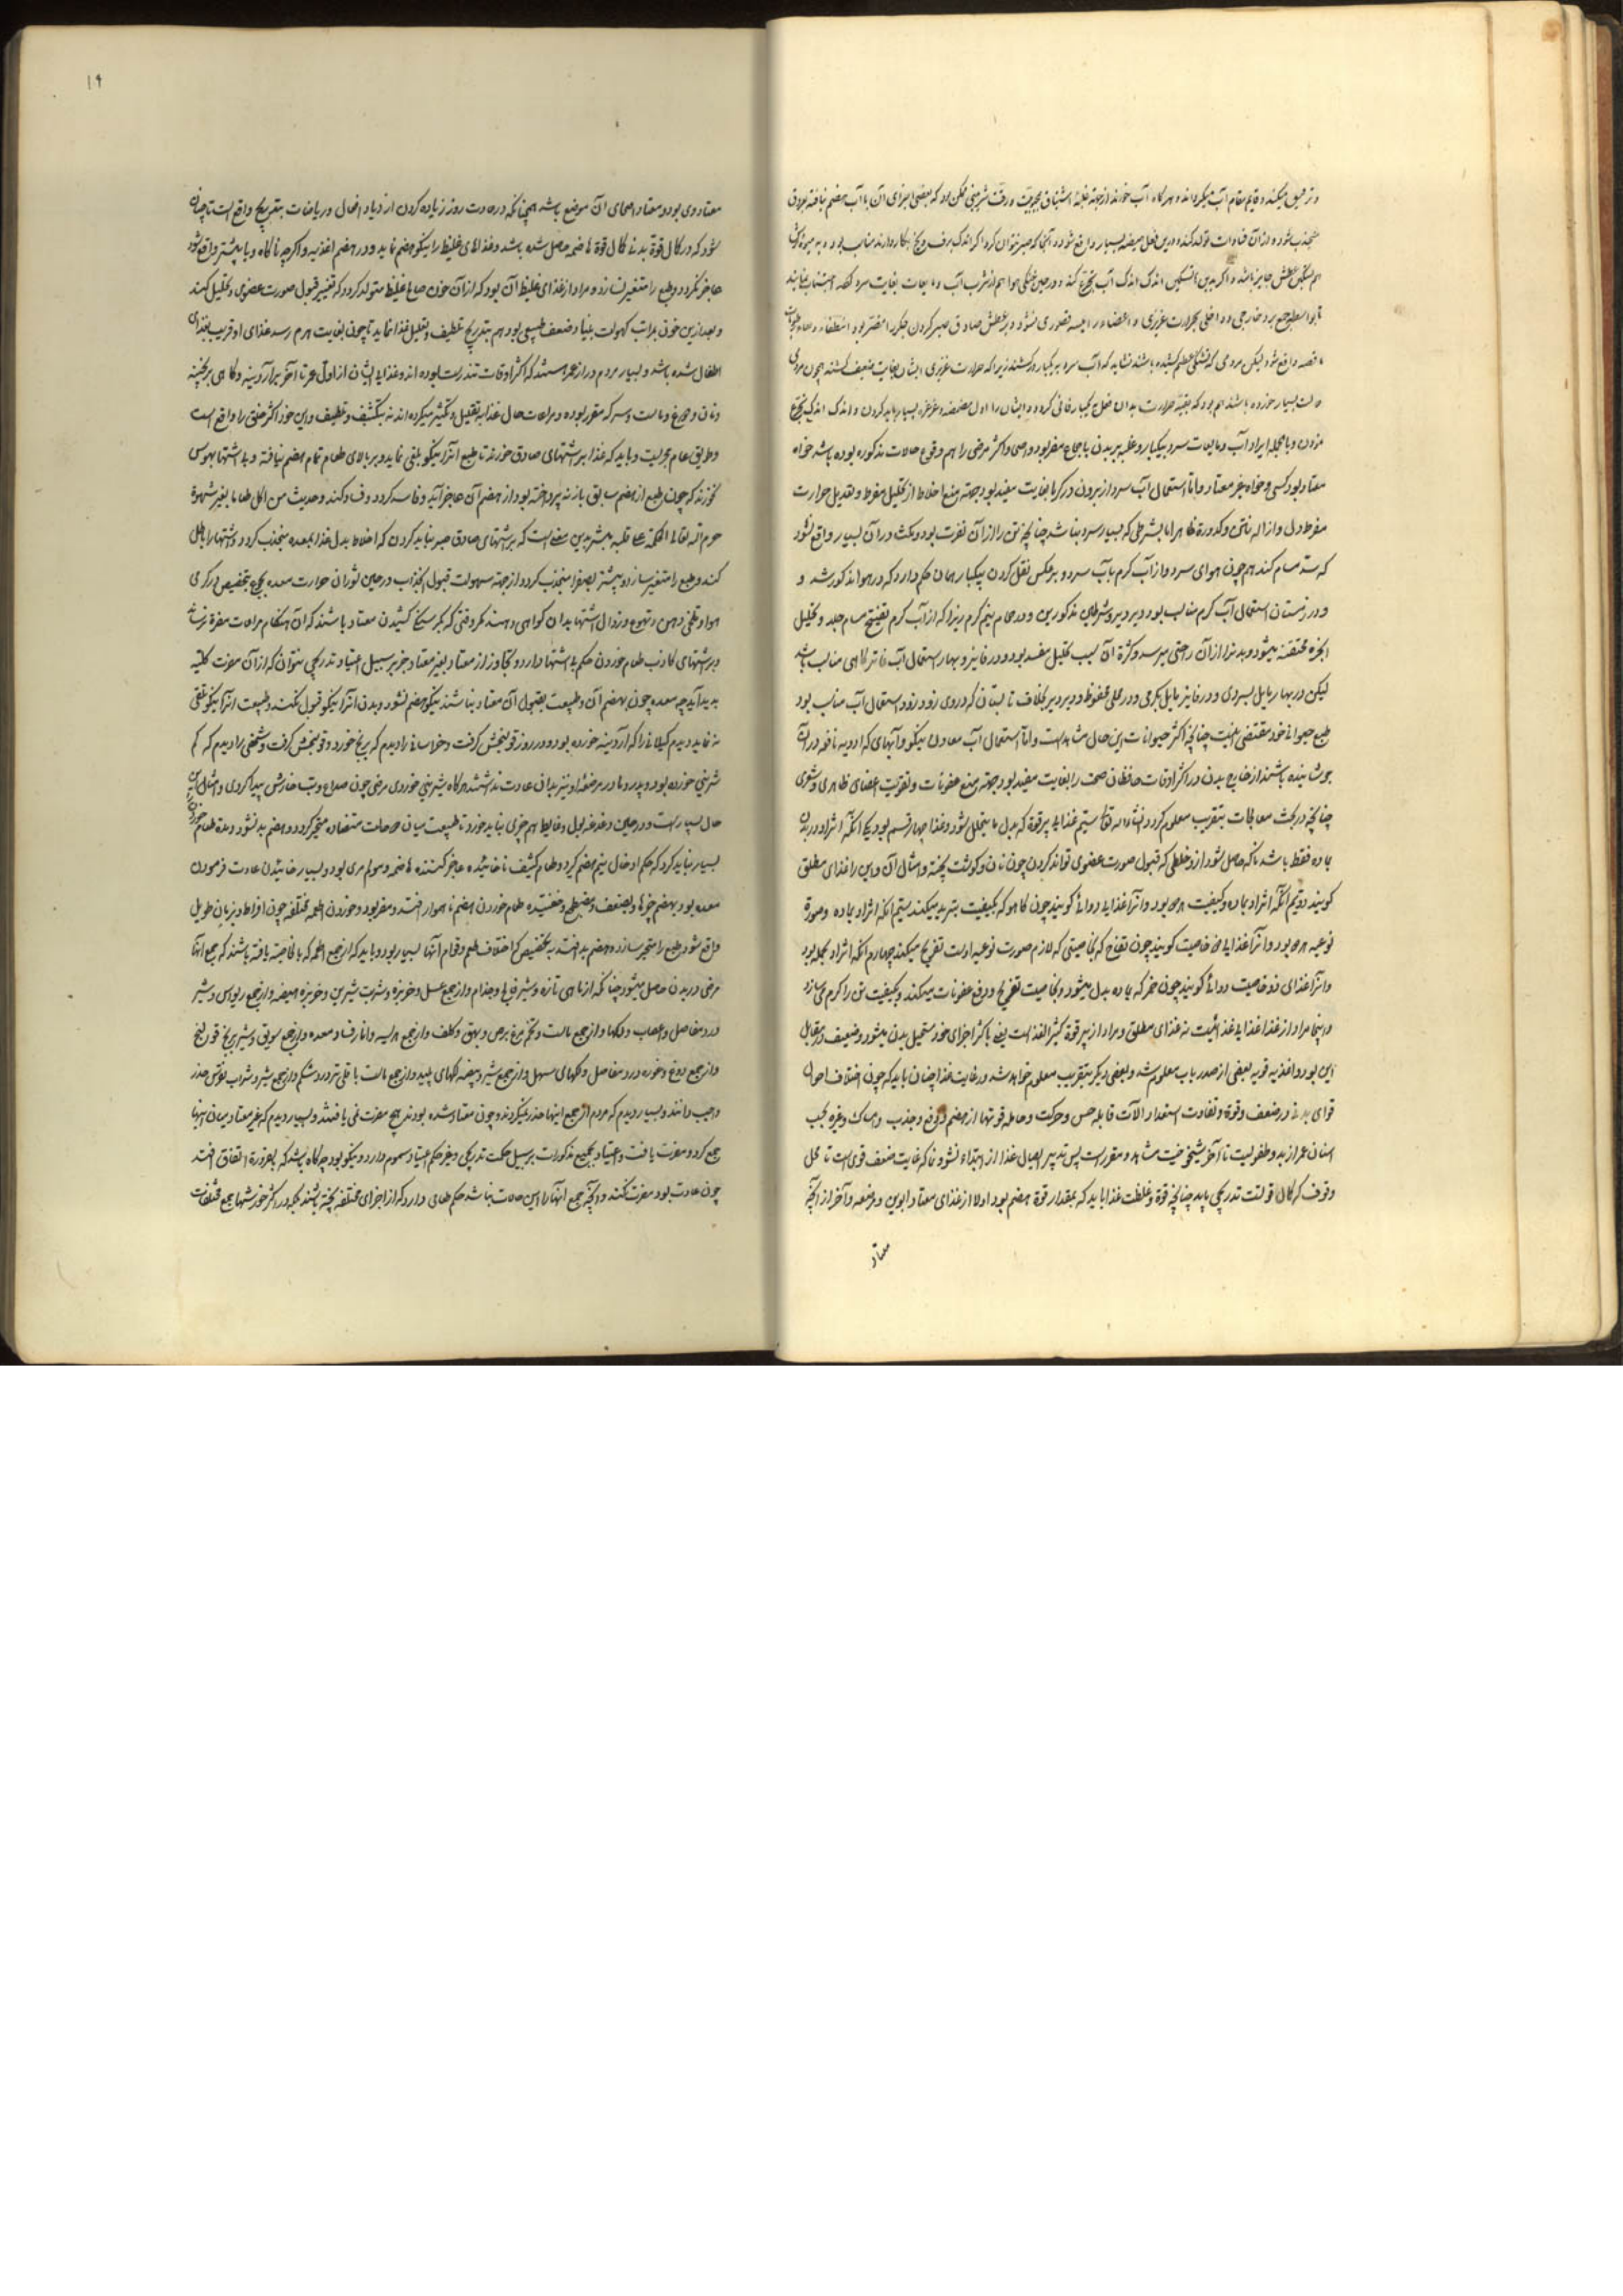 و ترقیق میکند و قایم مقام آب میکرداند و هرکاه آب خورند از جهة غلبهٔ اشتیاق و رقت شرینی ممکن بود که بعضی اجزای آن با آب هضم نیافته بعروق
منجذب شود و از آن فسادات تولد کند و درین فعل هیضه بسیار واقع شود و آنجا که صبر نتوان کرد اکر اندک برف و یخ بکار دارند مناسب بود و به میوهٔ ترش
هم تسکین عطش جایز باشد و اکر بدین تسکین اندک اندک آب تجرع کند و در حین خنکی هوا هم از شرب آب و مایعات بغایت سرد اجتناب نمایند
تا بواسطه جمع برد خارجی و داخلی بحرارت غریزی و اعضاء رئیسه قصوری نشود و بر عطش صادق صبر کردن جکر را مضر بود
واقع شود لیکن مردمی که تشنکی عظیم کشیده باشند نشاید که آب سرد به یکبار درکشند زیرا که حرارت غریزی ایشان بغایت ضعیف کشته همچون مردمی
بسیار خورده باشند هم بود که بقیهٔ حرارت بدان فعل به یکبار فانی کردد و ایشان را اول مضمضه و غرغره بسیار باید کردن و اندک اندک تجرع
و بالجمله ایراد آب و مایعات سرد به یکبار و غلبه بر بدن باجماع مضر بود و اصحا و اکثر مرضی را هم وقوع حالات مذکوره بوده باشد خواه
معتاد بود کسی و خواه غیر معتاد و اما استعمال آب سرد از برون در کرما بغایت مفید بود جهة منع اخلاط از تحلیل مفرط و تعدیل حرارت
مفرط دل و ازاله ماندکی و کدورة ظاهر اما بشرطی که بسیار سرد نباشد چنانچه تن را از آن نفرت بود و مکث در آن بسیار واقع نشود
که سد مسام کند هم چون هوای سرد و از آب کرم بآب سرد و برعکس نقل کردن به یکبار همان حکم دارد که در هوا مذکور شد و
و در زمستان استعمال آب کرم مناسب بود دیر دیر و شرطهای مذکورین و در حمام نیم کرم زیرا که از آب کرم تفتیح مسام جلد و تحلیل
ابخرهٔ محتقنه میشود و بدن را از آن راحتی میرسد و کثرة آن بسبب تحلیل مفسد بود و در خانیز و بهار استعمال آب فاتر کاهی مناسب باشد
لیکن در بهار مایل بسردی و در خانیز مایل بکرمی و در محلی محفوظ و دیر دیر بخلاف تابستان که در وی زود زود استعمال آب مناسب بود
طبع حیوانی خود مقتضی اینست چنانچه اکثر حیوانات این حال مشاهدست و اما استعمال آب معادن نیکو و آبهای که ادویه نافعه در آن
جوشانیده باشند از خارج بدن در اکثر اوقات حافظان صحت را بغایت مفید بود جهة منع عفونات و تقویت اعضای ظاهری و شوی
چنانچه در بحث معالجات بتقریب معلوم کردد انشاءالله تعالی ستیم غذای پر قوة که بدل ما یتحلل شود و غذا چهار قسم بود یکی آنکه اثر او در بدن
بماده فقط باشد تا که حاصل شود از وخلطی که قبول صورت عضوی تواند کردن چون نان و کوشت پخته و امثال آن و این را غذای مطلق
کویند دویم آنکه اثر او بماده و کیفیت هر دو بود و آنرا غذای دوائی کویند چون کاهو که بکیفیت تبرید میکند سیم آنکه اثر او بماده و صورة
نوعیه هر دو بود و آنرا غذای ذو خاصیت کویند چون تفاح که بخاصیتی که لازم صورت نوعیه اوست تفریح میکند چهارم آنکه اثر او بجمله بود
و آنرا غذای ذو خاصیت دوائی کویند چون خمر که بماده بدل میشود و بخاصیت تفریح و دفع عفونات میکند و بکیفیت تن را کرم می سازد
و اینجا مراد از غذا غذای مطلق و مراد از پر قوة کثیر الغذا است یعنی باکثر اجزای خود مستحیل ببدن میشود و ضعیف در مقابل
این بود و اغذیه قویه بعضی از صدر باب معلوم شد و بعضی دیکر بتقریب معلوم خواهد شد و رعایت غذا چنان باید که چون اختلاف احوال
قوای بدنی در ضعف و قوة و تفاوت استعداد آلات قابله حس و حرکت و حامله قوتها از هضم و دفع و جذب و امساک و غیره بحسب
اسنان عمر از بدو طفولیت تا آخر شیخوخیت مشاهد و مقررست پس تدبیر ایصال غذا از ابتداء نشو و نما که غایت ضعف قوی است تا محل
وقوف که کمال قوتست تدریجی باید چنانچه قوة و غلظت غذا باید که بمقدار قوة هضم بود اولا از غذای معتاد ابوین و مرضعه و آخر از آنچه
معتاد
۱۹
معتاد وی بود و معتاد اصحای آن موضع باشد همچنانکه در عادت روز زیاده کردن ازدیاد افعال و ریاضات بتدریج واقع است تا چنان
شود که در کمال قوة بدنی کمال قوة هاضمه حاصل شده باشد و غذاهای غلیظ را نیکو هضم نماید و در هضم اغذیه و اکرچه ناکاه و یا بیشتر واقع شود
عاجز نکردد و طبع را متغیر نسازد و مراد از غذای غلیظ آن بود که از آن خون صالح غلیظ متولد کردد که تغییر قبول صورت عضوی و تحلیل کند
و بعد ازین خون بمراتب کهولت بنیاد ضعف طبیعی بود هم بتدریج تلطیف و تقلیل غذا نماید تا چون بغایت هرم رسد غذای او قریب بغذای
اطفال شده باشد و بسیار مردم دراز عمر هستند که اکثر اوقات تندرست بوده اند و غذای ایشان از اول عمر تا آخر برآردینه و کاهی برنجینه
و نان و دوغ و ماست و سرکه مقرر بوده و مراعات حال غذا به تقلیل و تکثیر میکرده اند نه بتکثیف و تلطیف و این خود اکثر خلق را واقع است
و طریق عام تجربیست و باید که غذا بر اشتهای صادق خورند تا طبع آنرا نیکو تلقی نماید و بر بالای طعام تمام هضم نیافته و بی اشتها بهوس
نخورند که چون طبع از هضم سابق باز نه پرداخته بود از هضم آن عاجز آید و فاسد کردد و فساد کند و حدیث من اکل طعاما بغیر شهوة
حرم الله تعالی الحکمة علی قلبه مشیر بدین معنی است که بر اشتهای صادق صبر نباید کردن که اخلاط بدل غذا بمعده منجذب کردد و اشتها را باطل
کند و طبع را متغیر سازد و بیشتر صفرا منجذب کردد از جهة سهولت قبول انجذاب در حین ثوران حرارت معده بجوع بتخصیص در کرمی
هوا و تلخی دهن و تهوع و زوال اشتها بدان کواهی دهند مکر وقتی که بکرسنکی کشیدن معتاد باشند که آن هنکام مراعات مضرة نرساند
و بر اشتهای کاذب طعام خوردن حکم بی اشتها دارد و تجاوز از معتاد بغیر معتاد جز بر سبیل اعتیاد تدریجی نتوان که از آن مضرت کلیه
پدید آید چه معده چون بهضم آن و طبیعت بقبول آن معتاد نباشند نیکو هضم نشود و بدن آنرا نیکو قبول نکند و طبیعت آنرا نیکو تلقی
نه نماید دیدم کیلانی را که آردینه خورده بود و در روز قولنجش کرفت و خراسانی را دیدم که برنج خورد و قولنجش کرفت و شخصی را دیدم که کم
شرینی خورده بود و پدر و مادر مرضعهٔ او نیز بدان عادت نداشتند هرکاه شیرینی خوردی مرضی چون صداع و تب و خارش پیدا کردی و امثال این
حال بسیارست و در حین دغدغه بول و غایط هم چیزی نباید خورد تا طبیعت میان حرکات متضاده متحیر کردد و هضم بد نشود و مدة طعام خوردن
بسیار نباید کرد که حکم ادخال نیم هضم کیرد و طعام کثیف ناخائیده عاجز کننده هاضمه و مولم مری بود و بسیار خائیدن عادت فرمودن
معده بود بهضم چیزها و بضعف و مضطجع و خفتیده طعام خوردن هضم ناهموار افتد و مضر بود و خوردن اطعمه مختلفه چون افراط و بزمان طویل
واقع شود طبع را متحیر سازد و هضم بد افتد بتخصیص که اختلاف طعم و قوام آنها بسیار بود و باید که از جمع اطعمه که بالخاصیة یافته باشند که جمع آنها
مرضی در بدن حاصل میشود چنانکه از ماهی تازه و شیر فالج و جذام و از جمع عسل و خربزه و شربت شیرین و خربزه هیضه و از جمع ریواس و شیر
درد مفاصل و اعصاب و دلکها و از جمع ماست و تخم مرغ برص و بهق و کلف و از جمع هریسه و انار فساد معده و از جمع سویق و شیر برنج قولنج
و از جمع دوغ و غوره درد مفاصل و کلکهای سهل و از جمع شیر و بیضه کلکهای پلید و از جمع ماست با قلی تر درد شکم و از جمع شیر و شراب نقرس حذر
واجب دانند و بسیار دیدم که مردم از جمع اینها حذر نمیکردند و چون معتاد شده بودند هیچ مضرت نمی یافتند و بسیار دیدم که غیر معتاد میان اینها
جمع کرد و مضرت یافت و اعتیاد بجمیع مذکورات بر سبیل حکمت تدریجی و غیر حکم اعتیاد سموم دارد و نیکو بود چه کاه باشد که بضرورة اتفاق افتد
چون عادت بود مضرت نکند و آنچه جمع آنها را این حالات نباشد حکم طعامی دارد که از اجزای مختلفه پخته باشند بلکه در اکثر خورشها جمع مختلفات